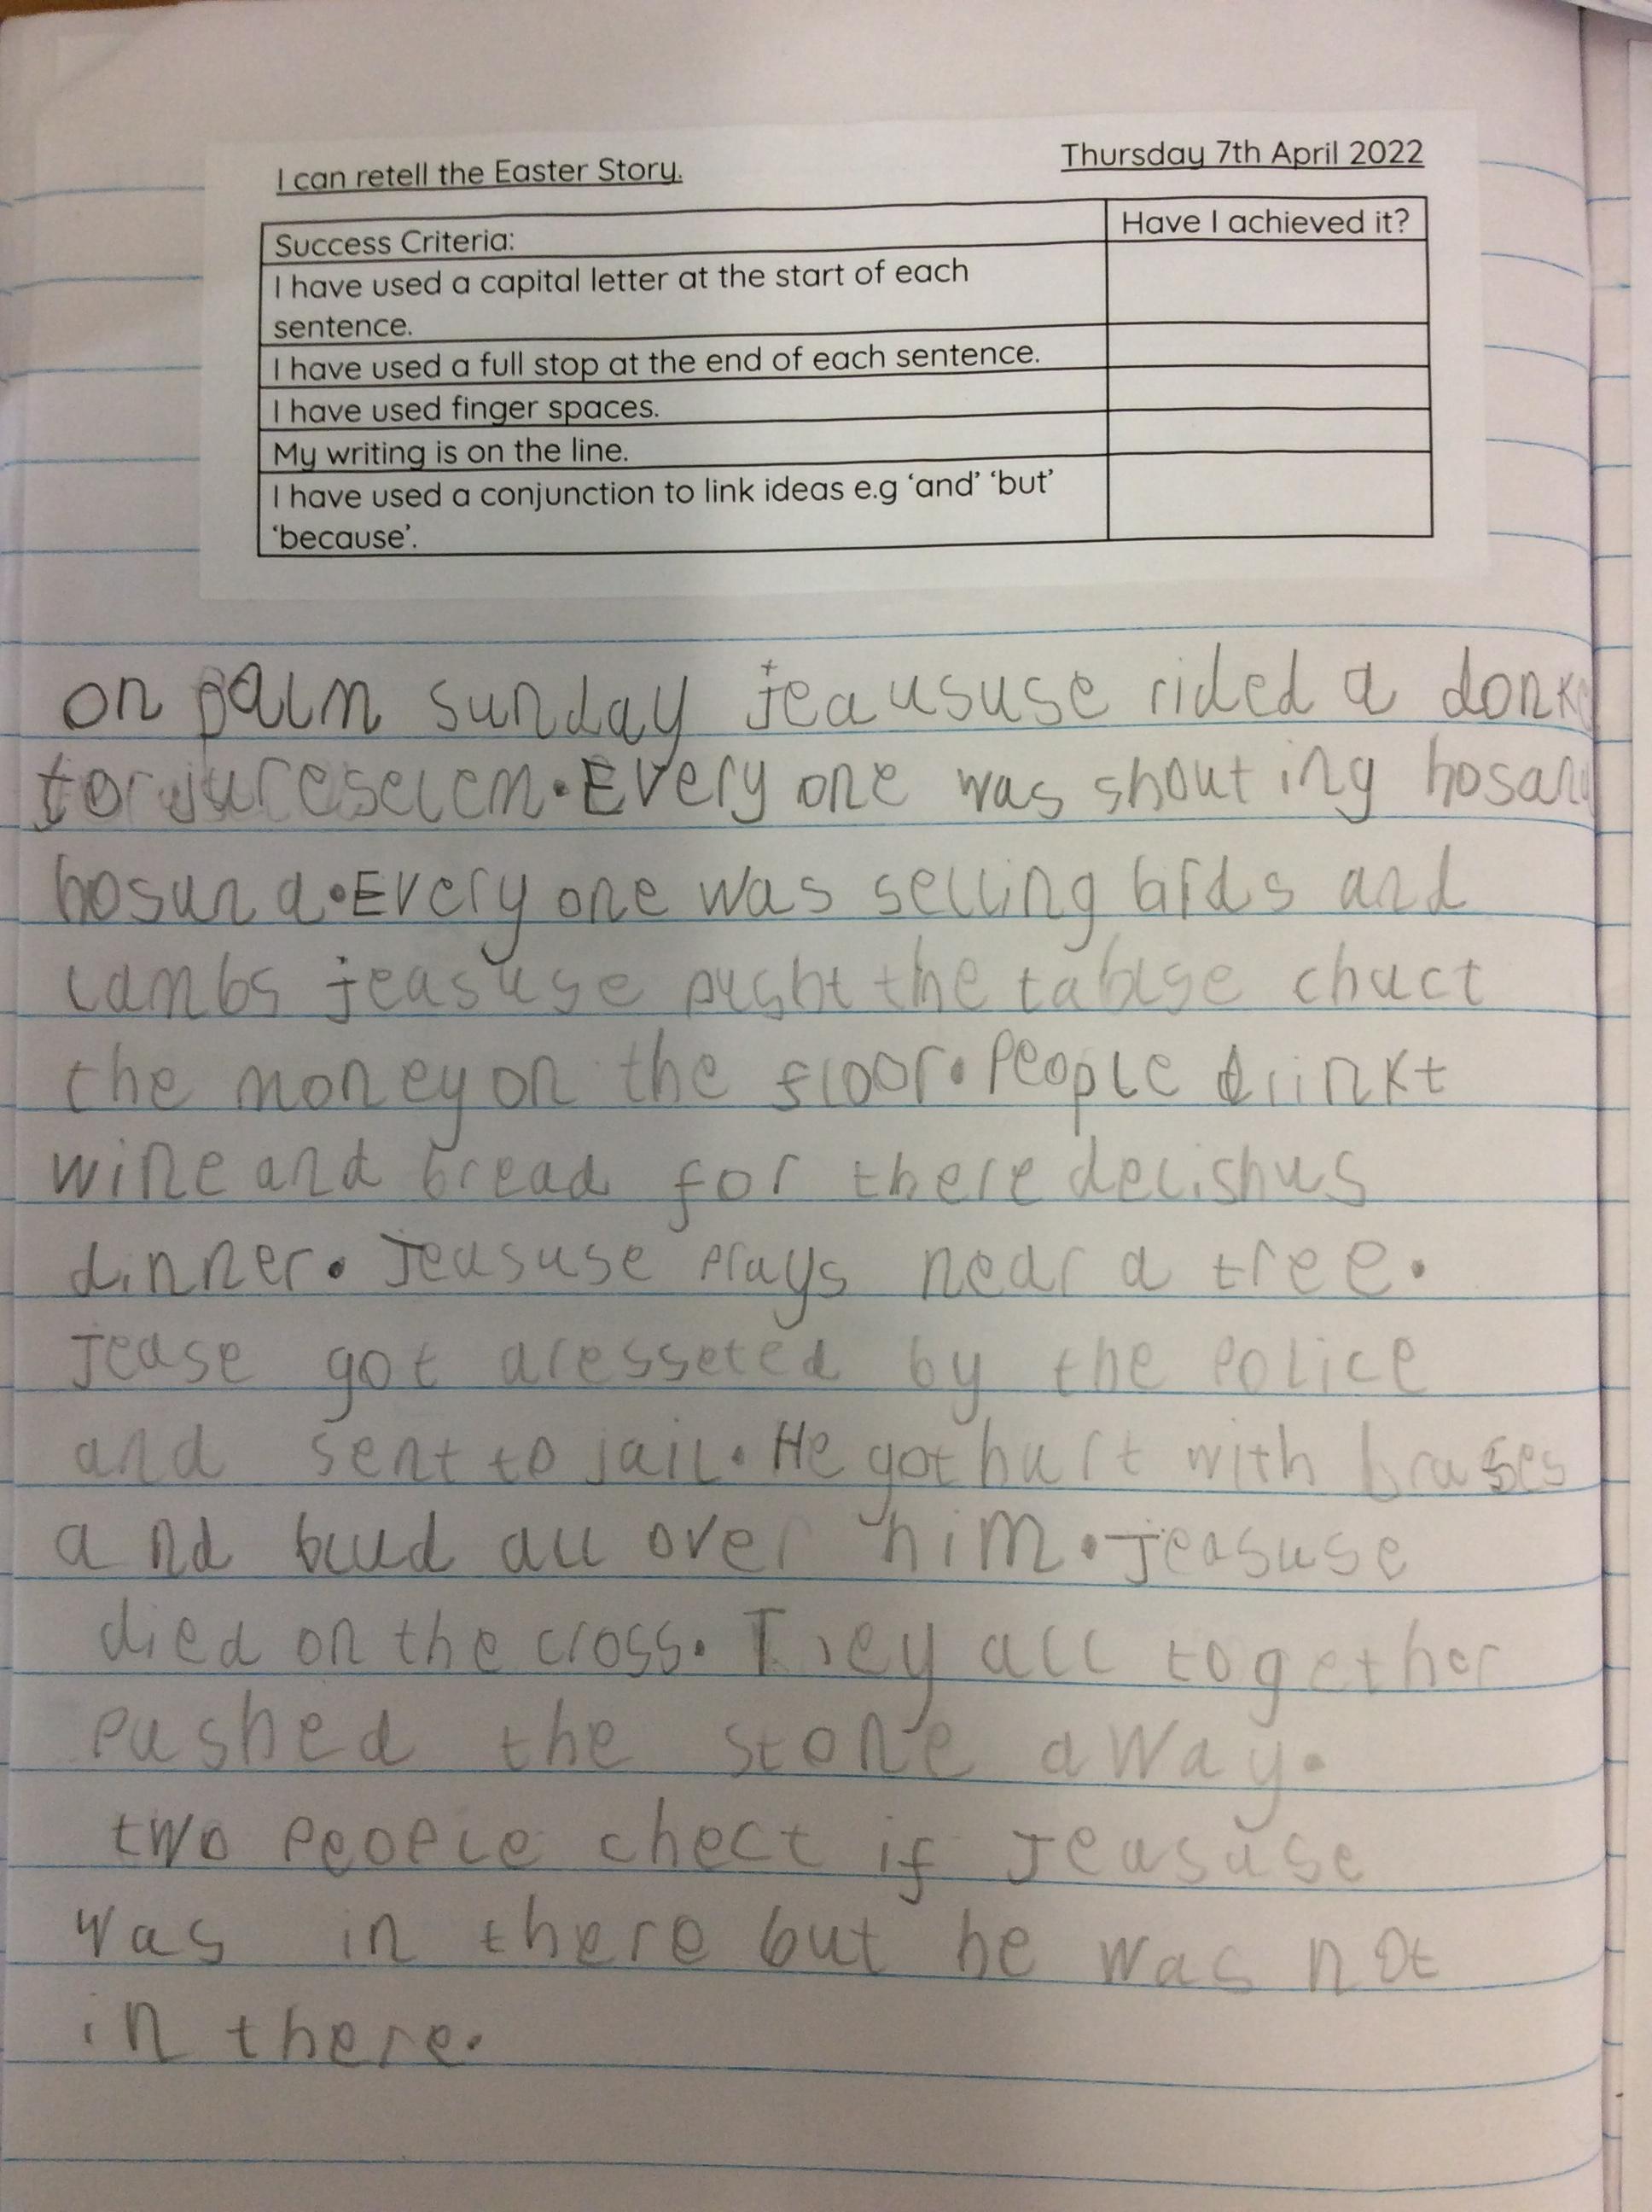 I can retell the Easter Story.
Thursday 7th April 2022
Success Criteria:
Have I achieved it?
I have used a capital letter at the start of each
sentence.
I have used a full stop at the end of each sentence.
I have used finger spaces.
My writing is on the line.
I have used a conjunction to link ideas e.g 'and' 'but'
'because'.
on palm sunday jeaususe rided a
Every one was shout ing
hosun a. Every one was selling birds and
lambs jeasuse pusht the chuct
the money on the floor. People drinkt
wine and bread for there delishus
dinner. Jeasuse prays near a tree.
Jease got aresseted by the police
and sent to jail. He got hurt with
and blud all over him. Jeasuse
died on the cross. They all together
pushed the stone away.
two people chect if Jeasuse
was in there but he was not
in there.